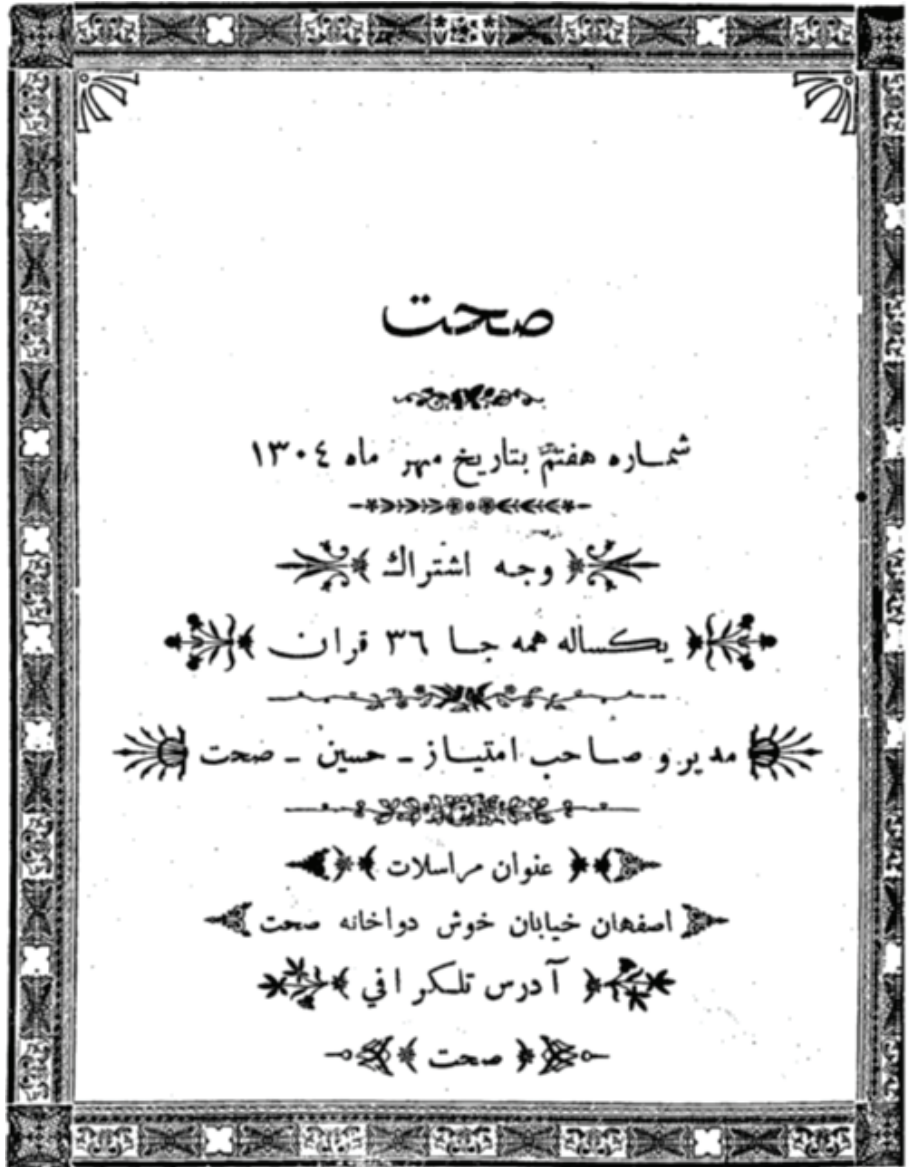 صحت
شماره هفتم بتاریخ مهر ماه ۱۳۰٤
وجه اشتراك
یکساله همه جا ۳٦ قران
مدیر و صاحب امتیاز ـ حسین ـ صحت
عنوان مراسلات
اصفهان خیابان خوش دواخانه صحت
آدرس تلکرافي
صحت